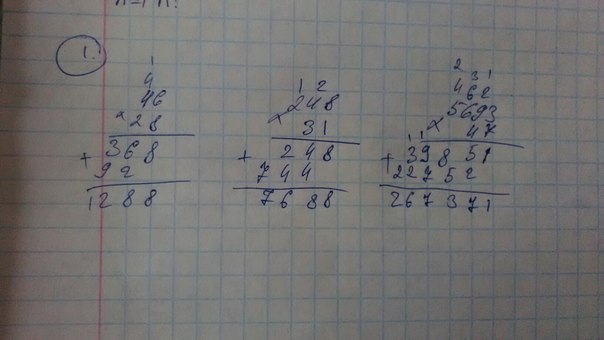 1.
1
4
46
× 28
368
+
92
1288
1 2
248
× 31
248
+
744
7688
2
3 1
4 6 2
5693
× 47
1 1
+ 39851
22752
267371